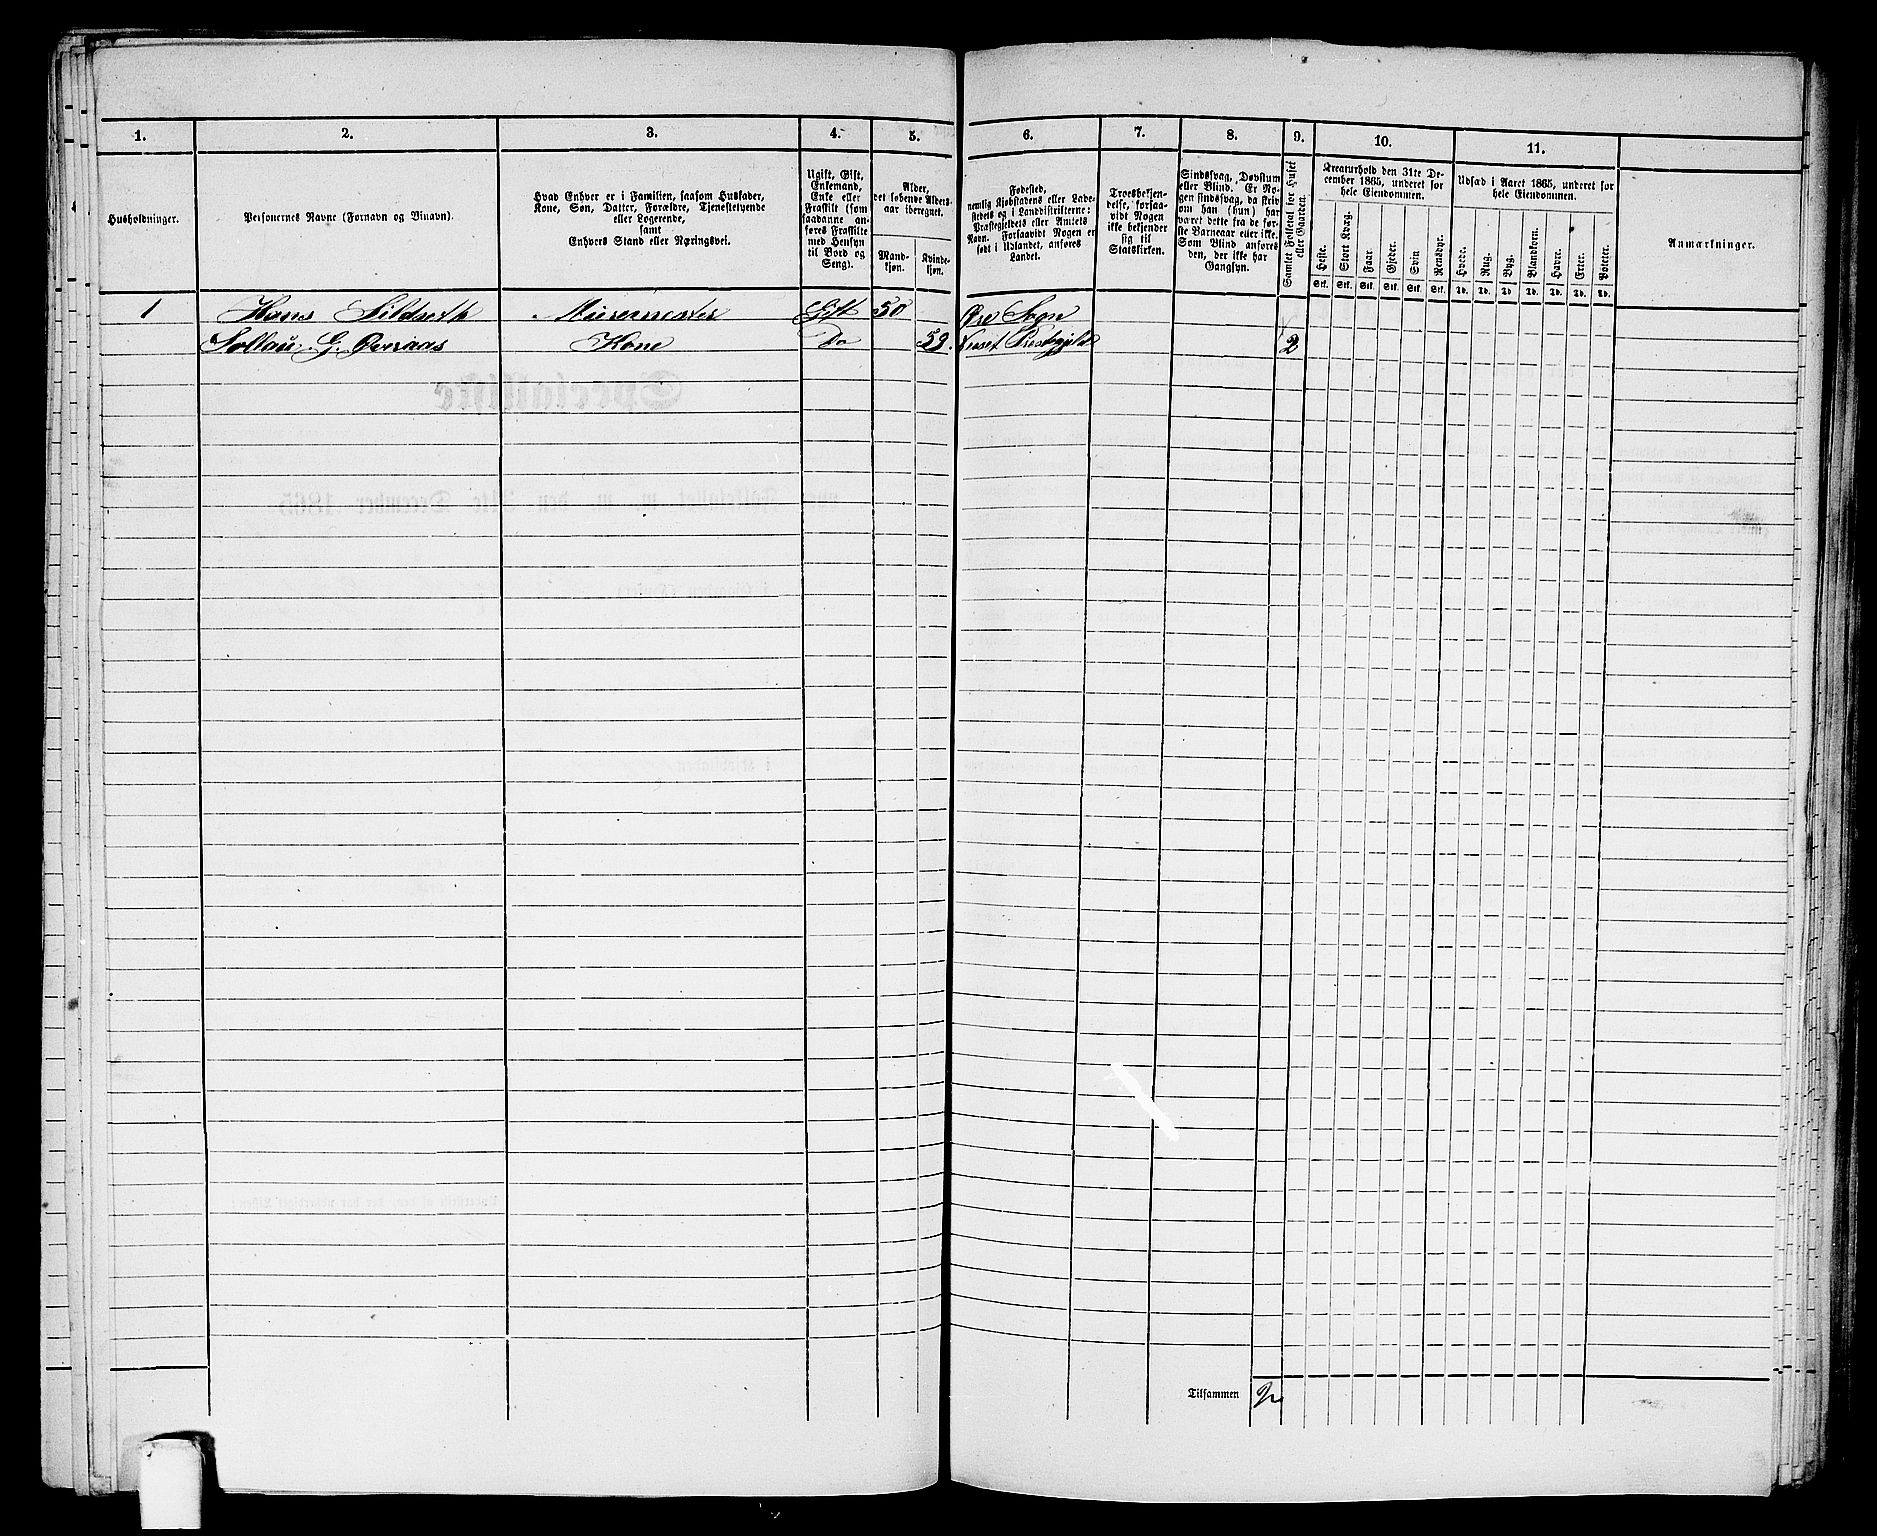 1.
2.
3.
4.
5.
6.
7.
8.
9.
10.
11.
Husholdninger.
Personernes Navne (Fornavn og Tilnavn).
Hvad Enhver er i Familien, saasom Husfader,
Kone, Søn, Datter, Forældre, Tjenestetyende
eller Logerende,
samt
Enhvers Stand eller Næringsvei.
Ugift, Gift,
Enkemand,
Enke eller
Fraskilt (som
saadanne an-
føres Fraskilte
med Hensyn
til Bord og
Seng).
Alder,
det løbende Alders-
aar iberegnet.
Mand-
kjøn.
Kvinde-
kjøn.
Fødested,
nemlig Kjøbstadens eller Lade-
stedets og i Landdistrikterne:
Præstegjeldets eller Amtets
Navn. Forsaavidt Nogen er
født i Udlandet, anføres
Landet.
Troesbekjen-
delse, forsaa-
vidt Nogen
ikke bekjender
sig til
Statskirken.
Sindssvag, Døvstum
eller Blind. Er No-
gen sindssvag, da skriv
om han (hun) har
været dette fra de før-
ste Barneaar eller ikke.
Som Blind anføres
den, der ikke har
Gangsyn.
Samlet Folketal for Huset
eller Gaarden.
Kreaturhold den 31te De-
cember 1865, underet for
hele Eiendommen.
Heste.
Stort Kvæg.
Faar
Gjeder.
Svin
Rensdyr.
Stk. Stk. Stk. Stk. Stk. Stk.
Udsæd i Aaret 1865, underet for
hele Eiendommen.
Hvede.
Rug.
Byg.
Blandkorn.
Havre.
Erter.
Poteter.
Td. Td. Td. Td. Td. Td. Td.
Anmærkninger.
1 Hans Sildseth Muurmester Gift 50 Øre Sogn
G. Overaas Kone Do 59 Prestegjeld 2
Tilsammen 2